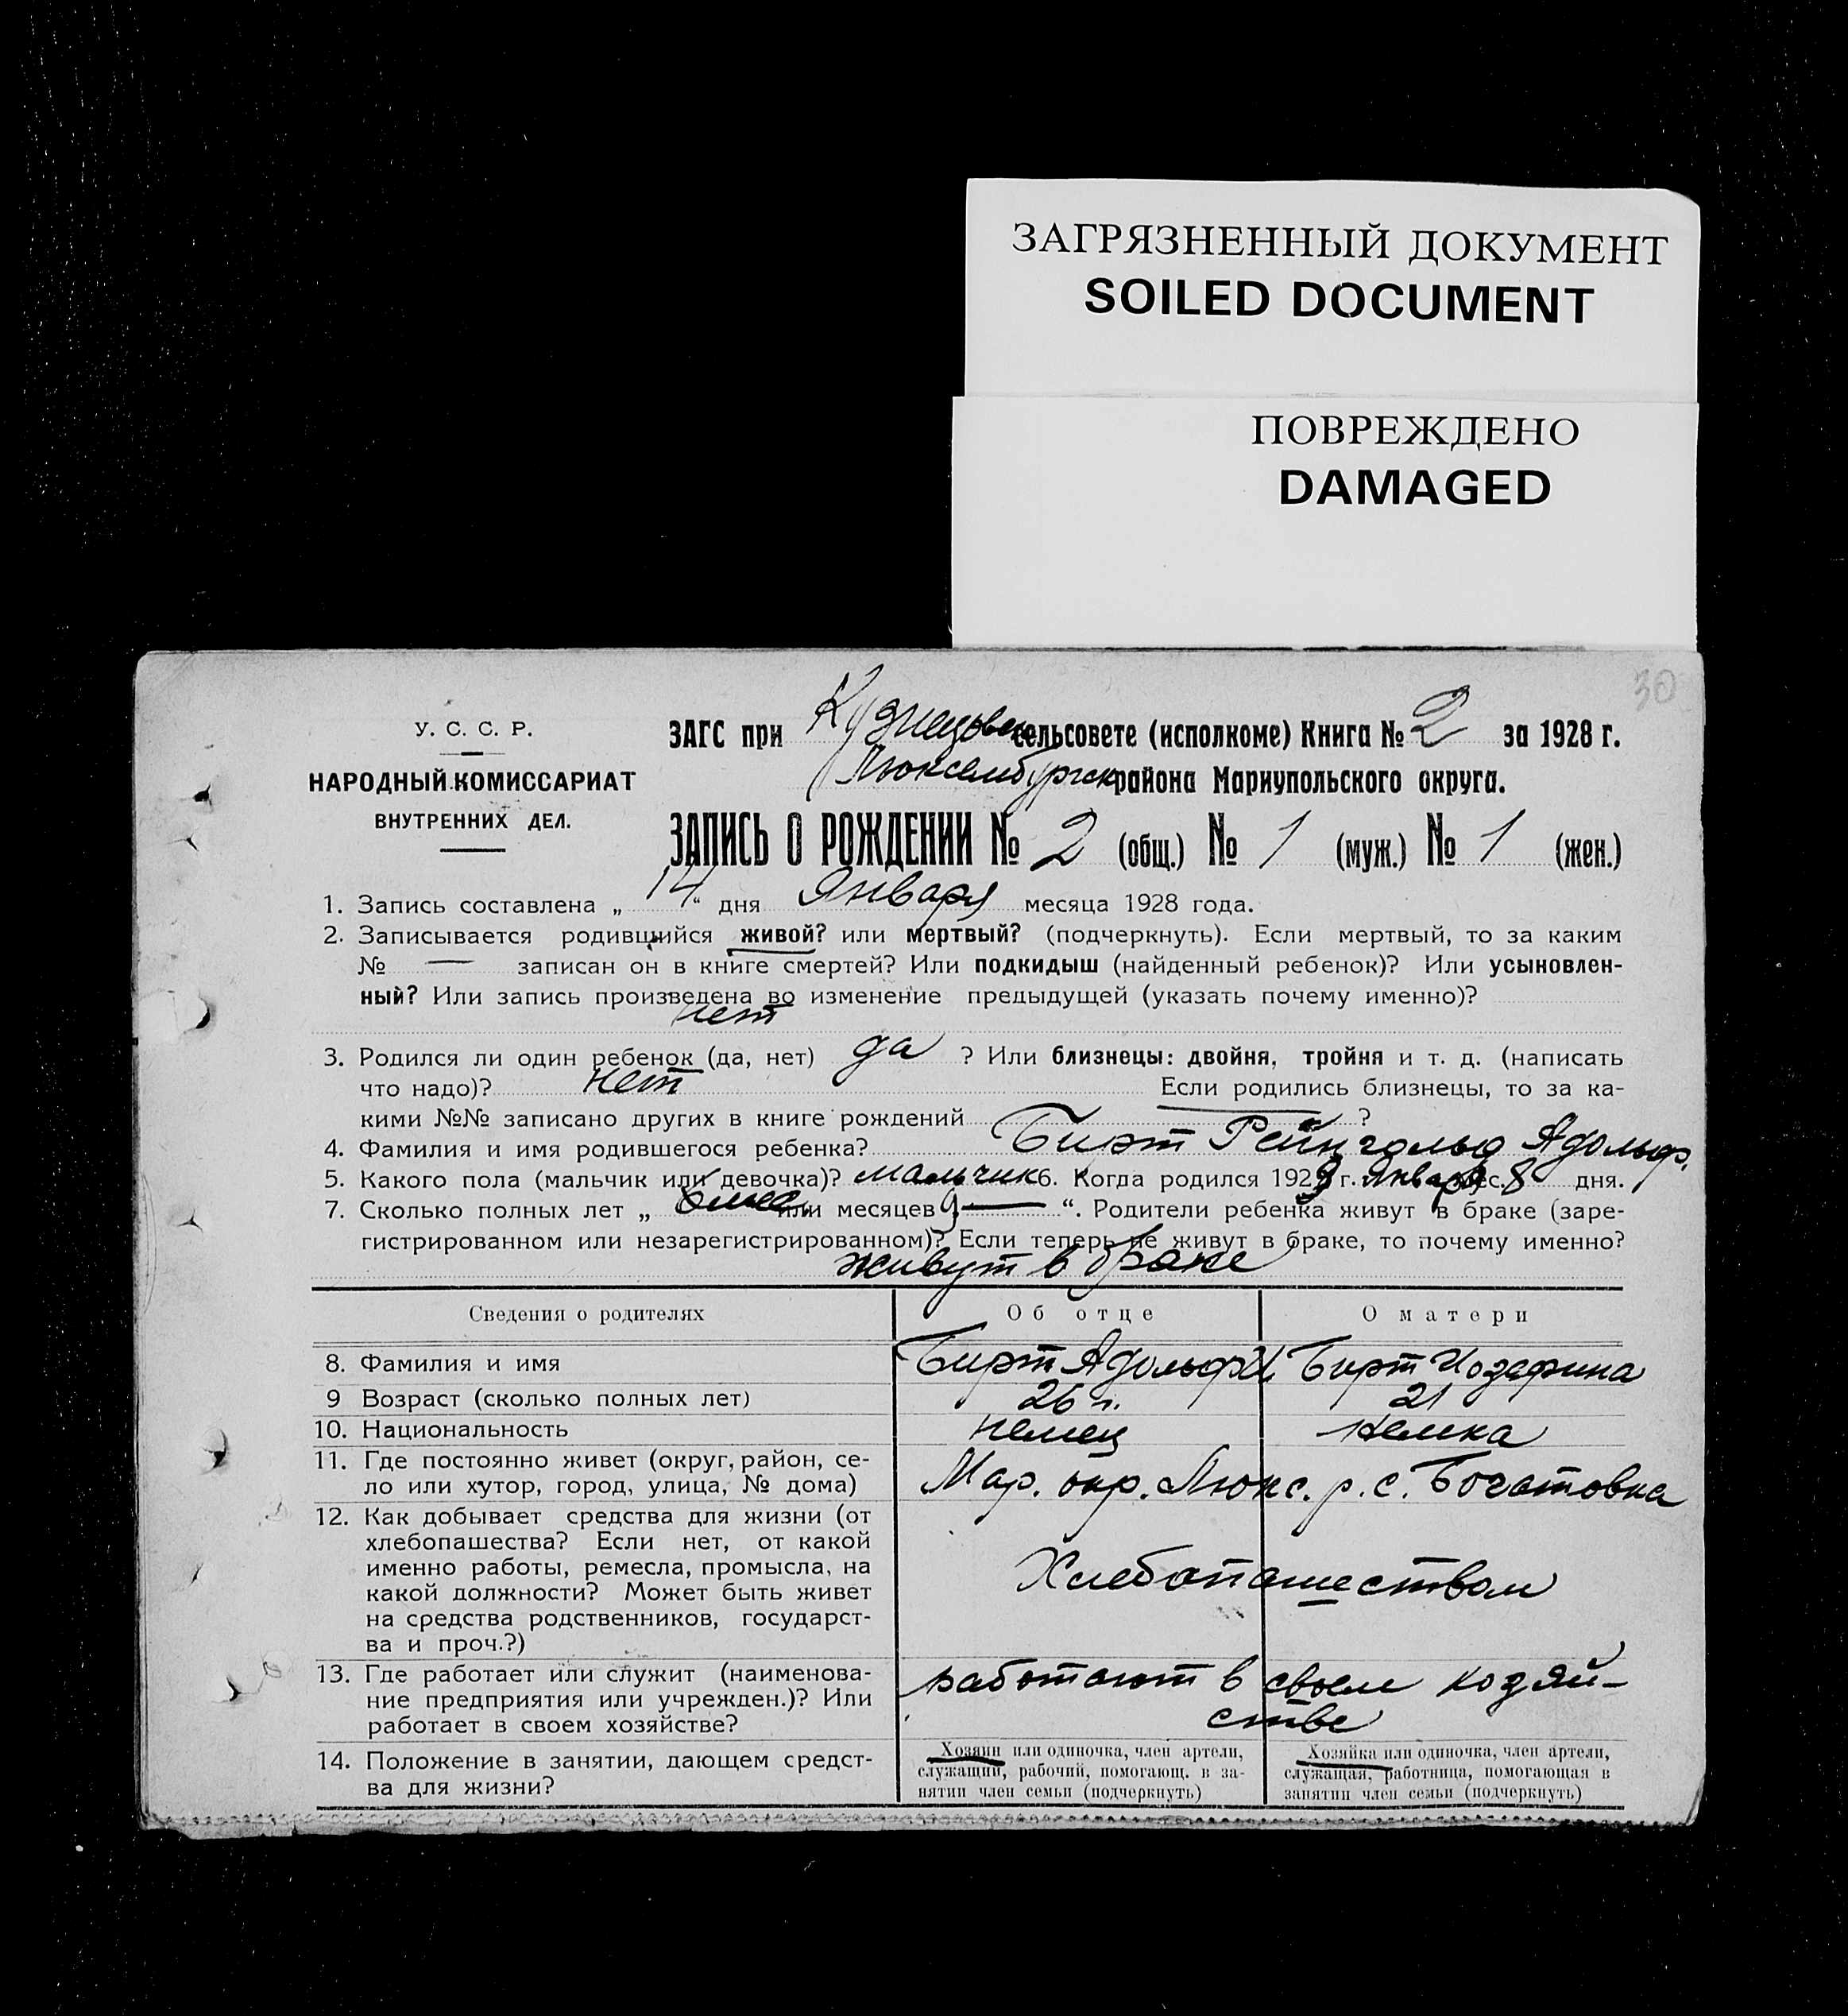 ЗАГРЯЗНЕННЫЙ ДОКУМЕНТ
SOILED DOCUMENT
ПОВРЕЖДЕНО
DAMAGED
30
У. С. С. Р.
НАРОДНЫЙ КОМИССАРИАТ
ВНУТРЕННИХ ДЕЛ.
ЗАГС при Кузнецовск сельсовете (исполкоме) Книга № 2 за 1928 г.
Люксембургск района Мариупольского округа.
ЗАПИСЬ О РОЖДЕНИИ № 2 (общ.) № 1 (муж.) № 1 (жен.)
1. Запись составлена „ 14 “ дня Января месяца 1928 года.
2. Записывается родившийся живой? или мертвый? (подчеркнуть). Если мертвый, то за каким
№ — записан он в книге смертей? Или подкидыш (найденный ребенок)? Или усыновлен-
ный? Или запись произведена во изменение предыдущей (указать почему именно)?
нет
3. Родился ли один ребенок (да, нет) да ? Или близнецы: двойня, тройня и т. д. (написать
что надо)? нет Если родились близнецы, то за ка-
кими №№ записано других в книге рождений ?
4. Фамилия и имя родившегося ребенка? Бирт Рейнгольд Адольф.
5. Какого пола (мальчик или девочка)? мальчик 6. Когда родился 192 г. Января мес. 8 дня.
7. Сколько полных лет „ или месяцев — “. Родители ребенка живут в браке (заре-
гистрированном или незарегистрированном)? Если теперь не живут в браке, то почему именно?
живут в браке
Сведения о родителях Об отце О матери
8. Фамилия и имя Бирт Адольф И Бирт Иозефина
9 Возраст (сколько полных лет) 26 г. 21
10. Национальность немец немка
11. Где постоянно живет (округ, район, се-
ло или хутор, город, улица, № дома) Мар. окр. Люкс. р. с. Богатовка
12. Как добывает средства для жизни (от
хлебопашества? Если нет, от какой
именно работы, ремесла, промысла, на
какой должности? Может быть живет
на средства родственников, государст-
ва и проч.?)
Хлебопашеством
13. Где работает или служит (наименова-
ние предприятия или учрежден.)? Или
работает в своем хозяйстве?
работают в своем хозяй-
стве
14. Положение в занятии, дающем средст-
ва для жизни?
Хозяин или одиночка, член артели,
служащий, рабочий, помогающ. в за-
нятии член семьи (подчеркнуть)
Хозяйка или одиночка, член артели,
служащая, работница, помогающая в
занятии член семьи (подчеркнуть)